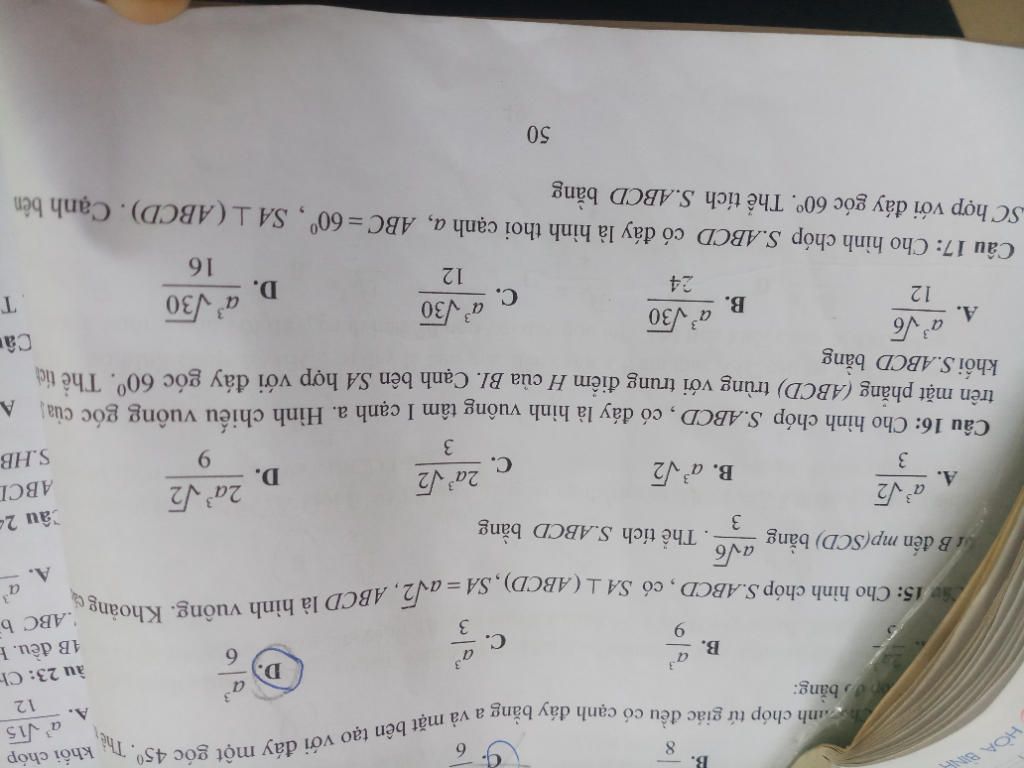 B. — 8 C. — 6
hình chóp tứ giác đều có cạnh đáy bằng a và mặt bên tạo với đáy một góc 45⁰. Thể
bằng:
B. a³/9 C. a³/3 D. a³/6
15: Cho hình chóp S.ABCD, có SA ⊥ (ABCD), SA = a√2, ABCD là hình vuông. Khoảng
B đến mp(SCD) bằng a√6/3. Thể tích S.ABCD bằng
A. a³√2/3 B. a³√2 C. 2a³√2/3 D. 2a³√2/9
Câu 16: Cho hình chóp S.ABCD, có đáy là hình vuông tâm I cạnh a. Hình chiếu vuông góc của
trên mặt phẳng (ABCD) trùng với trung điểm H của BI. Cạnh bên SA hợp với đáy góc 60⁰. Thể tích
khối S.ABCD bằng
A. a³√6/12 B. a³√30/24 C. a³√30/12 D. a³√30/16
Câu 17: Cho hình chóp S.ABCD có đáy là hình thoi cạnh a, ABC = 60⁰, SA ⊥ (ABCD). Cạnh bên
SC hợp với đáy góc 60⁰. Thể tích S.ABCD bằng
50
khối chóp
A. a³√15/12
âu 23: Ch
AB đều. H
.ABC b
A. a³
Câu 24
ABCD
S.HB
A
Câu
T
HÒA BÌNH